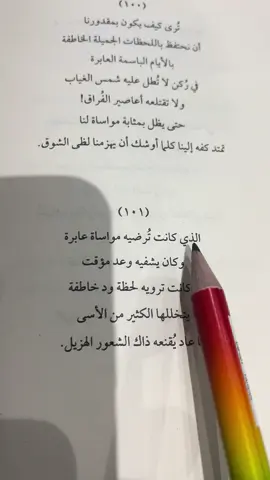 (١٠٠)
تُرى كيف يكون بمقدورنا
أن نحتفظ باللحظات الجميلة الخاطفة
بالأيام الباسمة العابرة
في رُكن لا تُطل عليه شمس الغياب
ولا تقتلعه أعاصير الفُراق!
حتى يظل بمثابة مواساة لنا
تمتد كفه إلينا كلما أوشك أن يهزمنا لظى الشوق.
(١٠١)
الذي كانت تُرضيه مواساة عابرة
وكان يشفيه وعد مؤقت
كانت ترويه لحظة ود خاطفة
يتخللها الكثير من الأسى
عاد يُقنعه ذاك الشعور الهزيل.